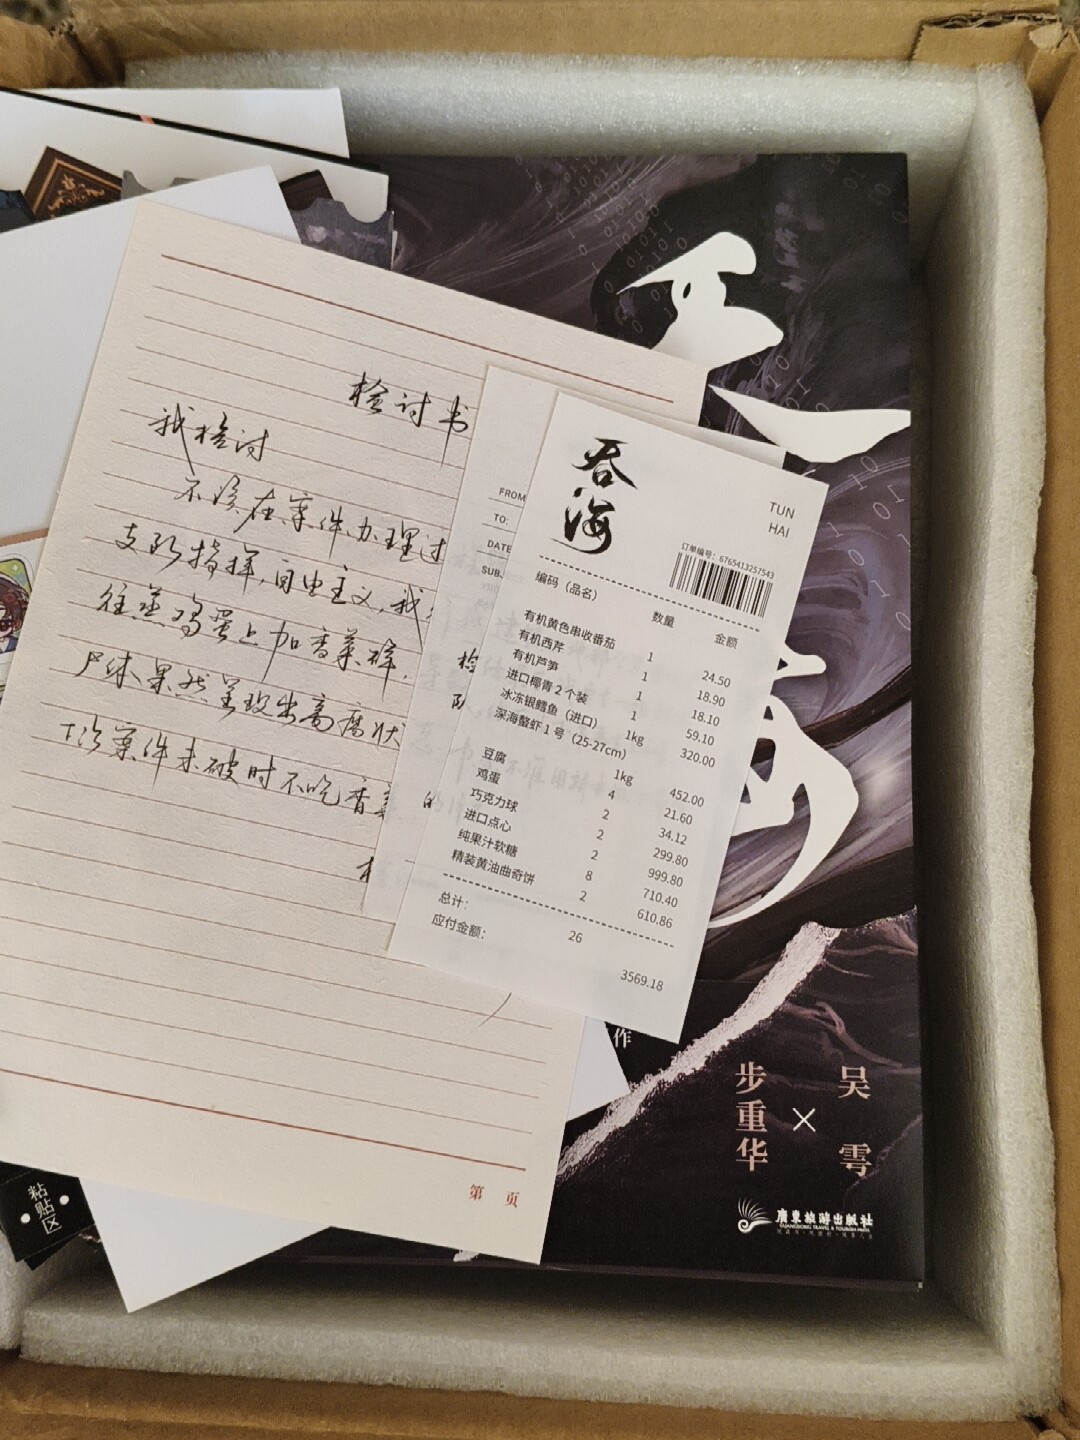 检讨书
我检讨
不该在案件办理过
支队指挥，自由主义，我
往蒸鸡蛋上加香菜碎，
尸体果然呈现出高腐状
下次案件未破时不吃香菜
FROM
TO:
DATE
SUB
吞海
TUN
HAI
订单编号：6765413257543
编码（品名） 数量 金额
有机黄色串收番茄 1 24.50
有机西芹 1 18.90
有机芦笋 1 18.10
进口椰青2个装 1 59.10
冰冻银鳕鱼（进口） 1kg 320.00
深海螯虾1号（25-27cm） 1kg 452.00
豆腐 4 21.60
鸡蛋 2 34.12
巧克力球 2 299.80
进口点心 2 999.80
纯果汁软糖 8 710.40
精装黄油曲奇饼 2 610.86
总计： 26
应付金额： 3569.18
第 页
作
吴雩
×
步重华
廣東旅游出版社
GUANGDONG TRAVEL & TOURISM PRESS
粘贴区